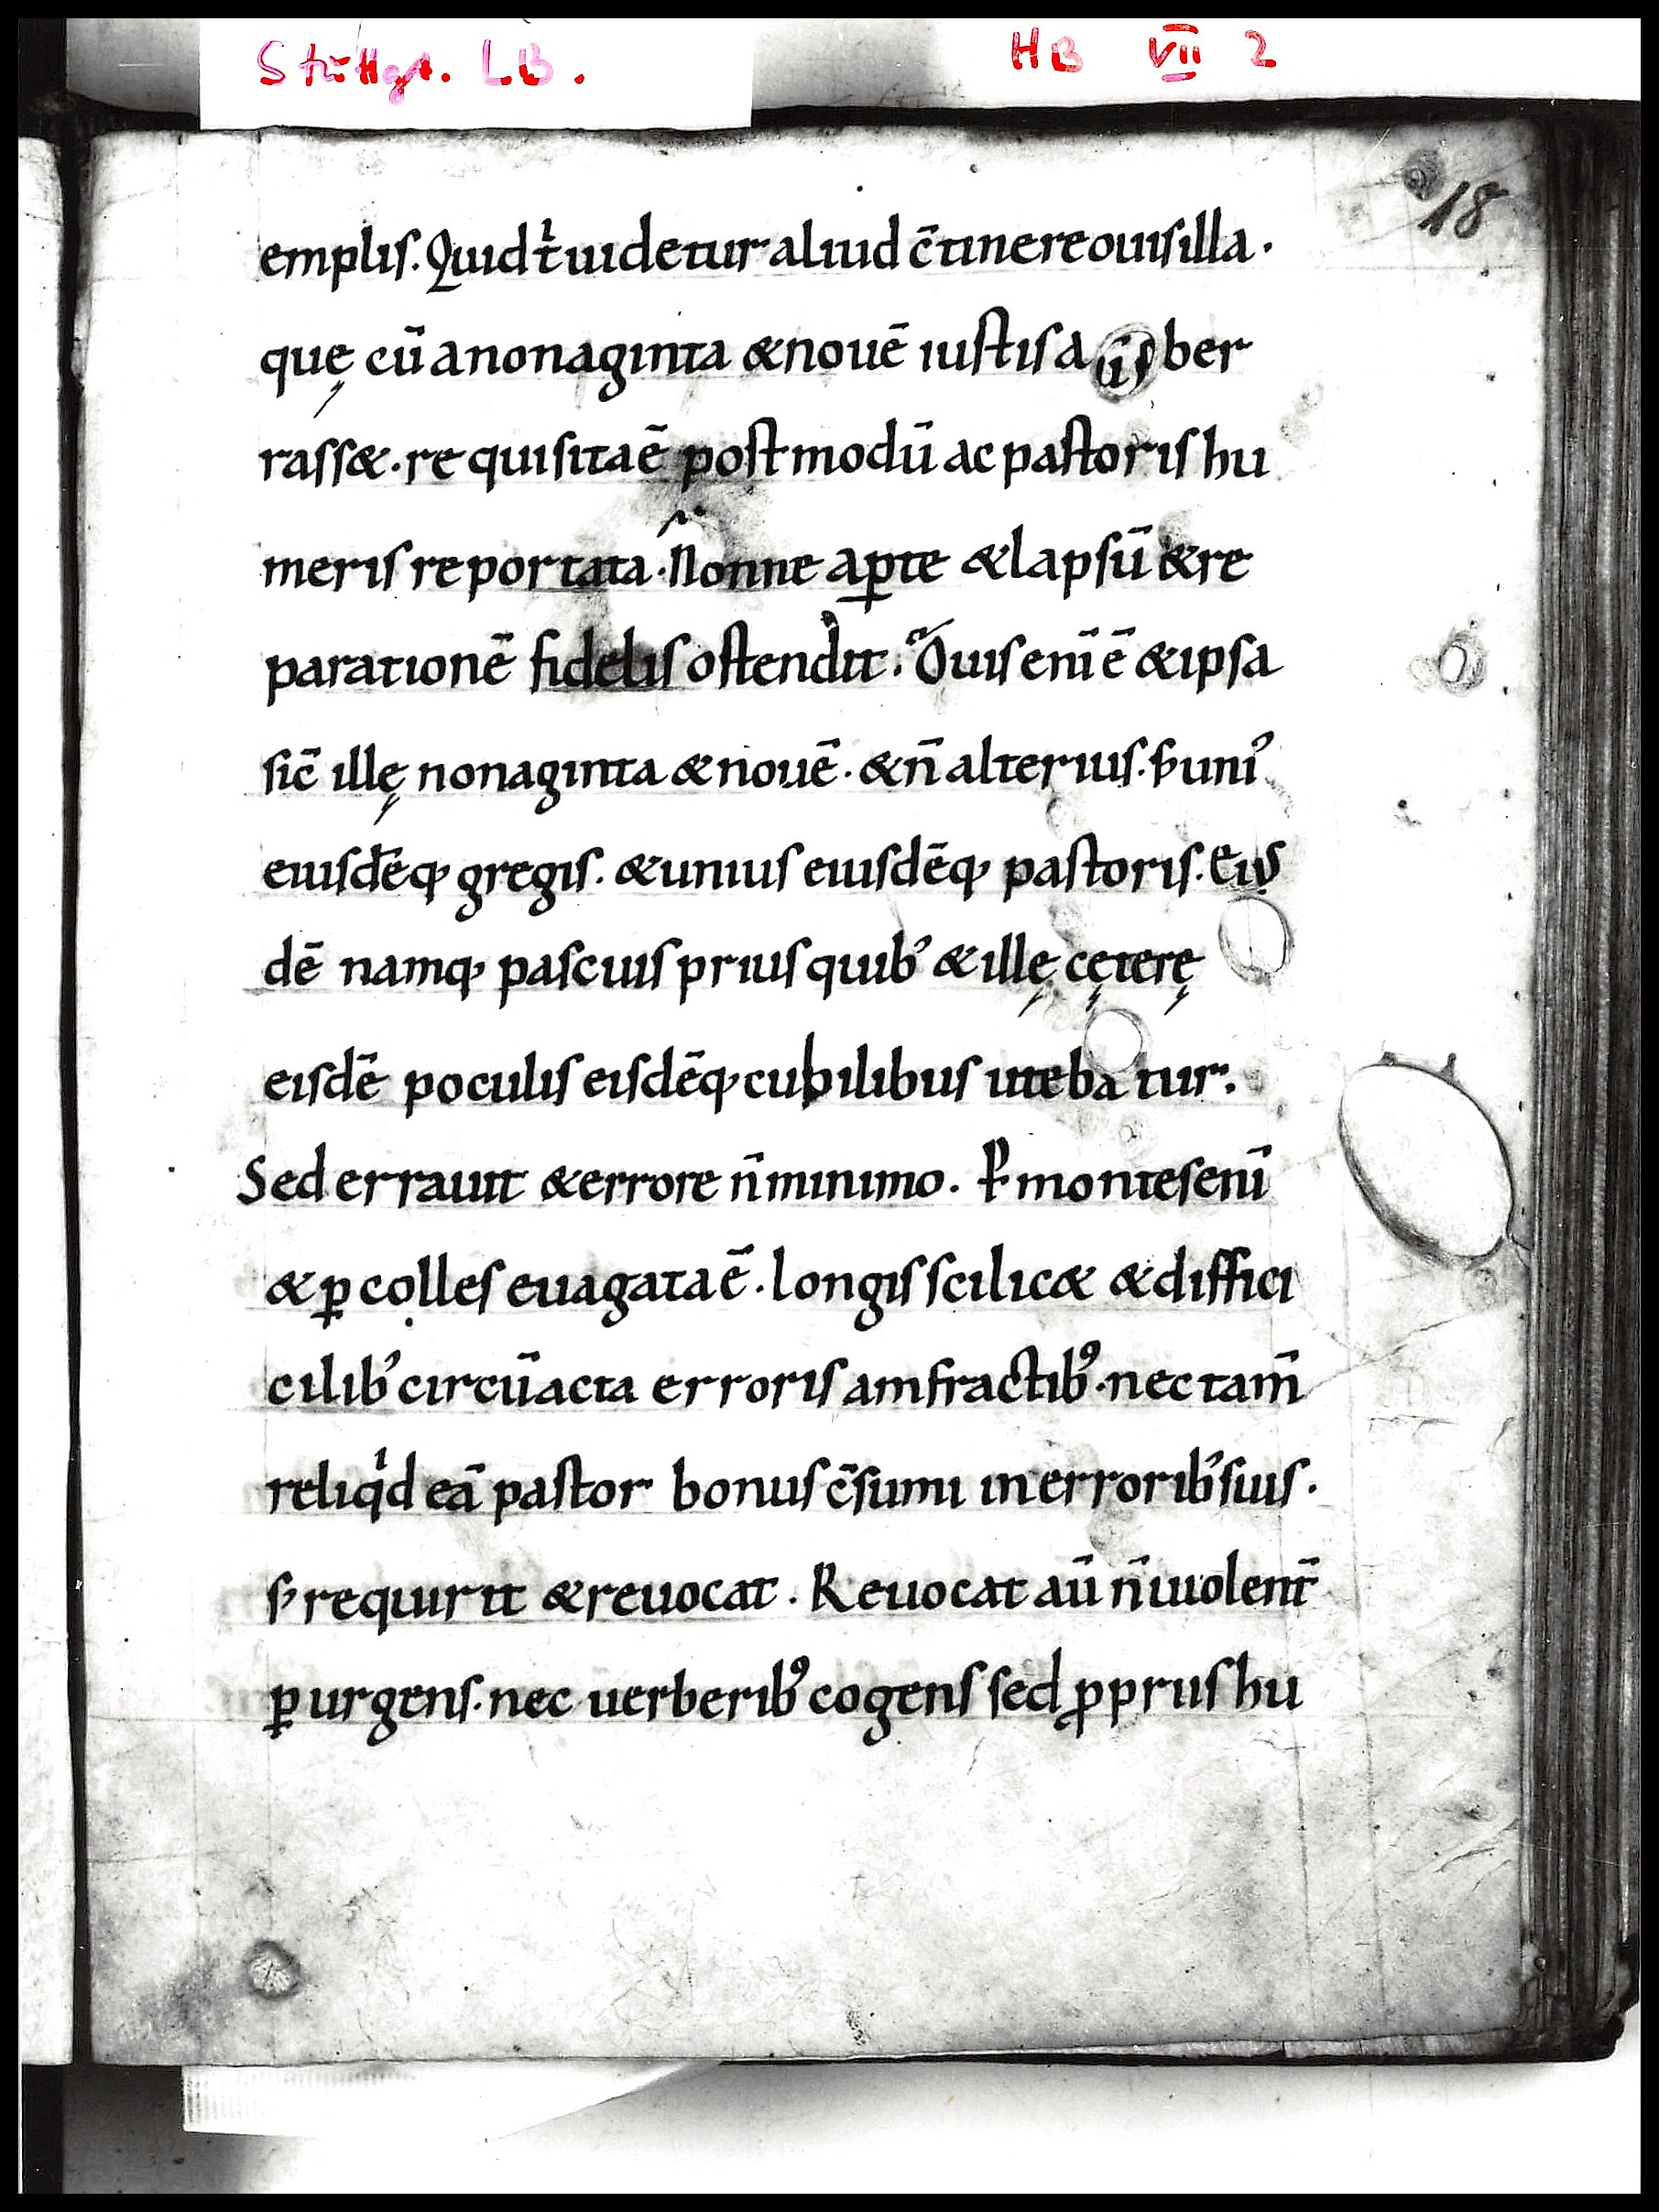 Stuttgt. LB. HB VII 2
18
emplis. Quid t̓ uidetur aliud c̄tinere ouis illa.
quę cū a nonaginta & nouē iustis a ber
rass&. requisita ē postmodū ac pastoris hu
meris reportata. Nonne ap̱te & lapsū & re
parationē fidelis ostendit. Ouis enī ē & ipsa
sic̄ illę nonaginta & nouē. & n̄ alterius. ſ; uniꝰ
eiusdēq; gregis. & unius eiusdēq; pastoris. Eis
dē namq; pascuis prius quibꝰ & illę cęterę
eisdē poculis eisdēq; cubilibus utebatur.
Sed errauit & errore n̄ minimo. P̱ montes enī
& ꝑ colles euagata ē. longis scilic& & diffici
cilibꝰ circūacta erroris amfractibꝰ. nec tam̄
reliqͥd eā pastor bonus c̄sumi in erroribꝰ suis.
ſ; requirit & reuocat. Reuocat aū n̄ uiolent̄
ꝑurgens. nec uerberibꝰ cogens sed ꝓpriis hu